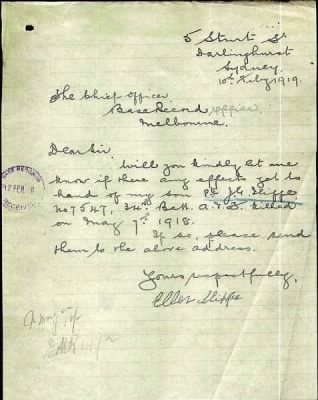 5 Sturt St
Darlinghurst
Sydney.
10th Feby 1919.
The Chief Officer
Base Record Office
Melbourne.
Dear Sir
Will you kindly let me
know if there any effects yet to
hand of my son
No 7547, 34th Batt. A.I.F. killed
on May 7th 1918.
If so, please send
them to the above address.
Yours respectfully,
Ellen
12 FEB